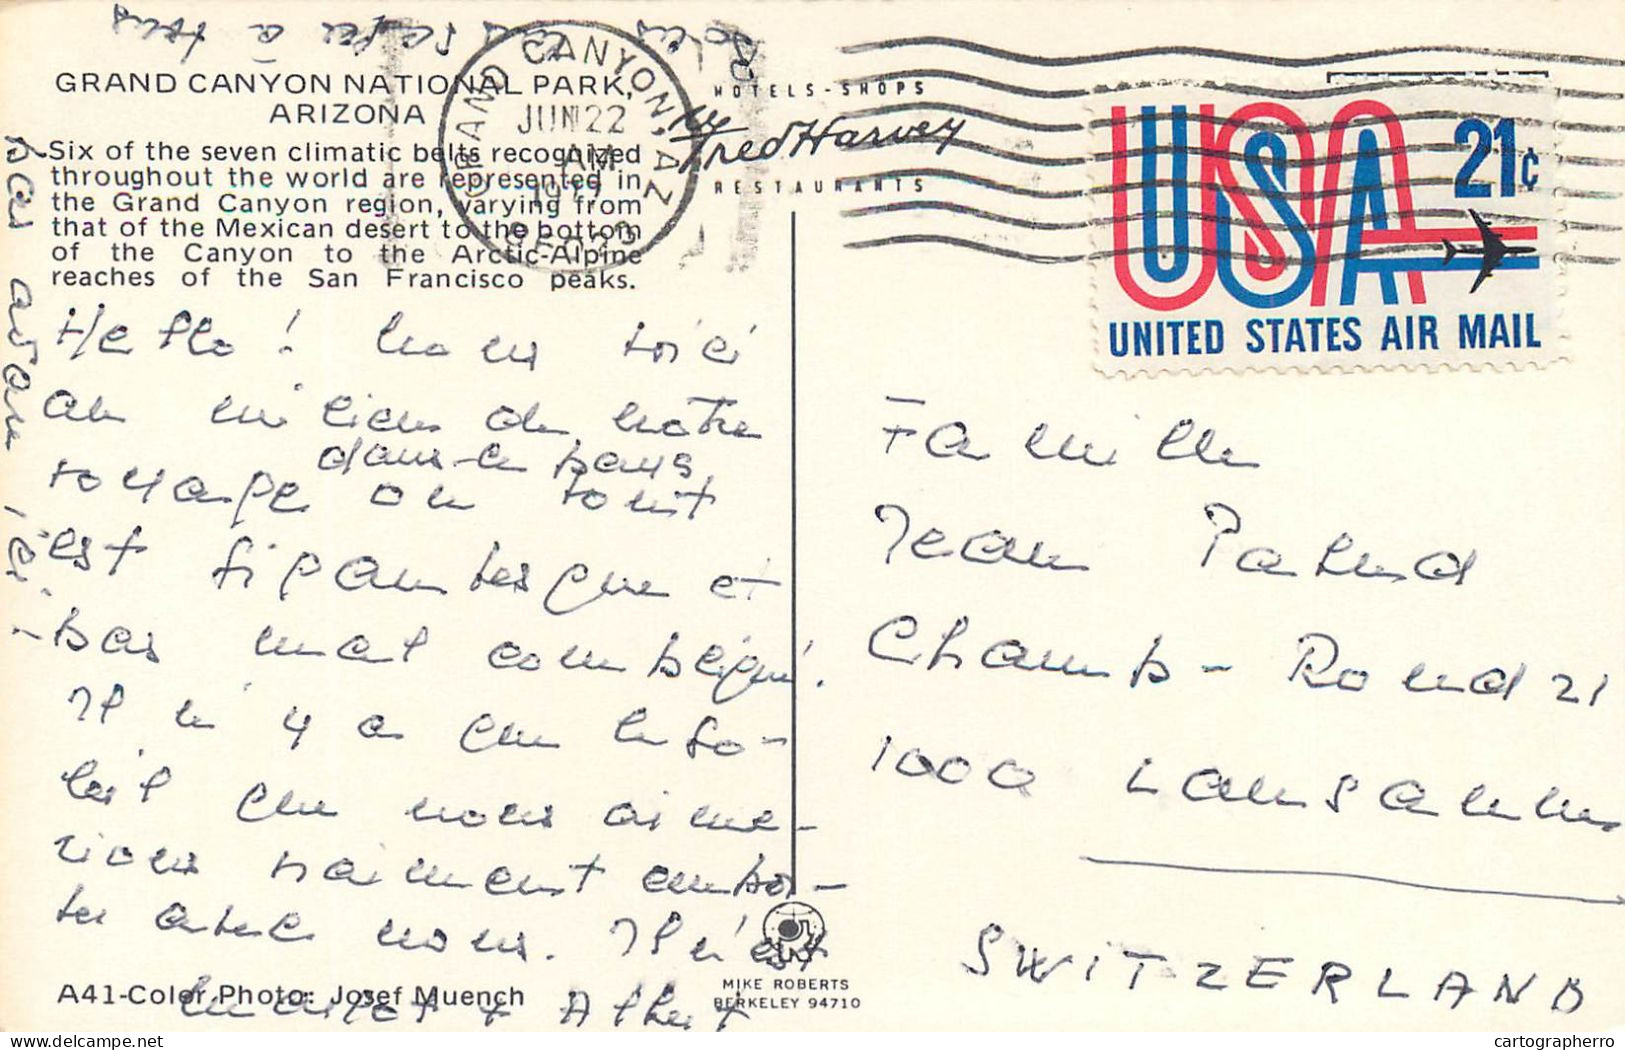 GRAND CANYON NATIONAL PARK,
ARIZONA
Six of the seven climatic belts recognized
throughout the world are represented in
the Grand Canyon region, varying from
that of the Mexican desert to the bottom
of the Canyon to the Arctic-Alpine
reaches of the San Francisco peaks.
Hello! nous voici
au milieu de notre
voyage dans le pays
où tout
est gigantesque et
pas mal compliqué!
Il n'y a que le so-
leil que nous aime-
rions vraiment empor-
ter avec nous. Il n'est
pas avare ici.
à tous
Albert
A41-Color Photo: Josef Muench
MIKE ROBERTS
BERKELEY 94710
GRAND CANYON, AZ
JUN 22
AM
86023
HOTELS-SHOPS
Fred Harvey
RESTAURANTS
USA 21c
UNITED STATES AIR MAIL
Famille
Jean Pahud
Champ-Rond 21
1000 Lausanne
SWITZERLAND
© Delcampe.net
cartographerro